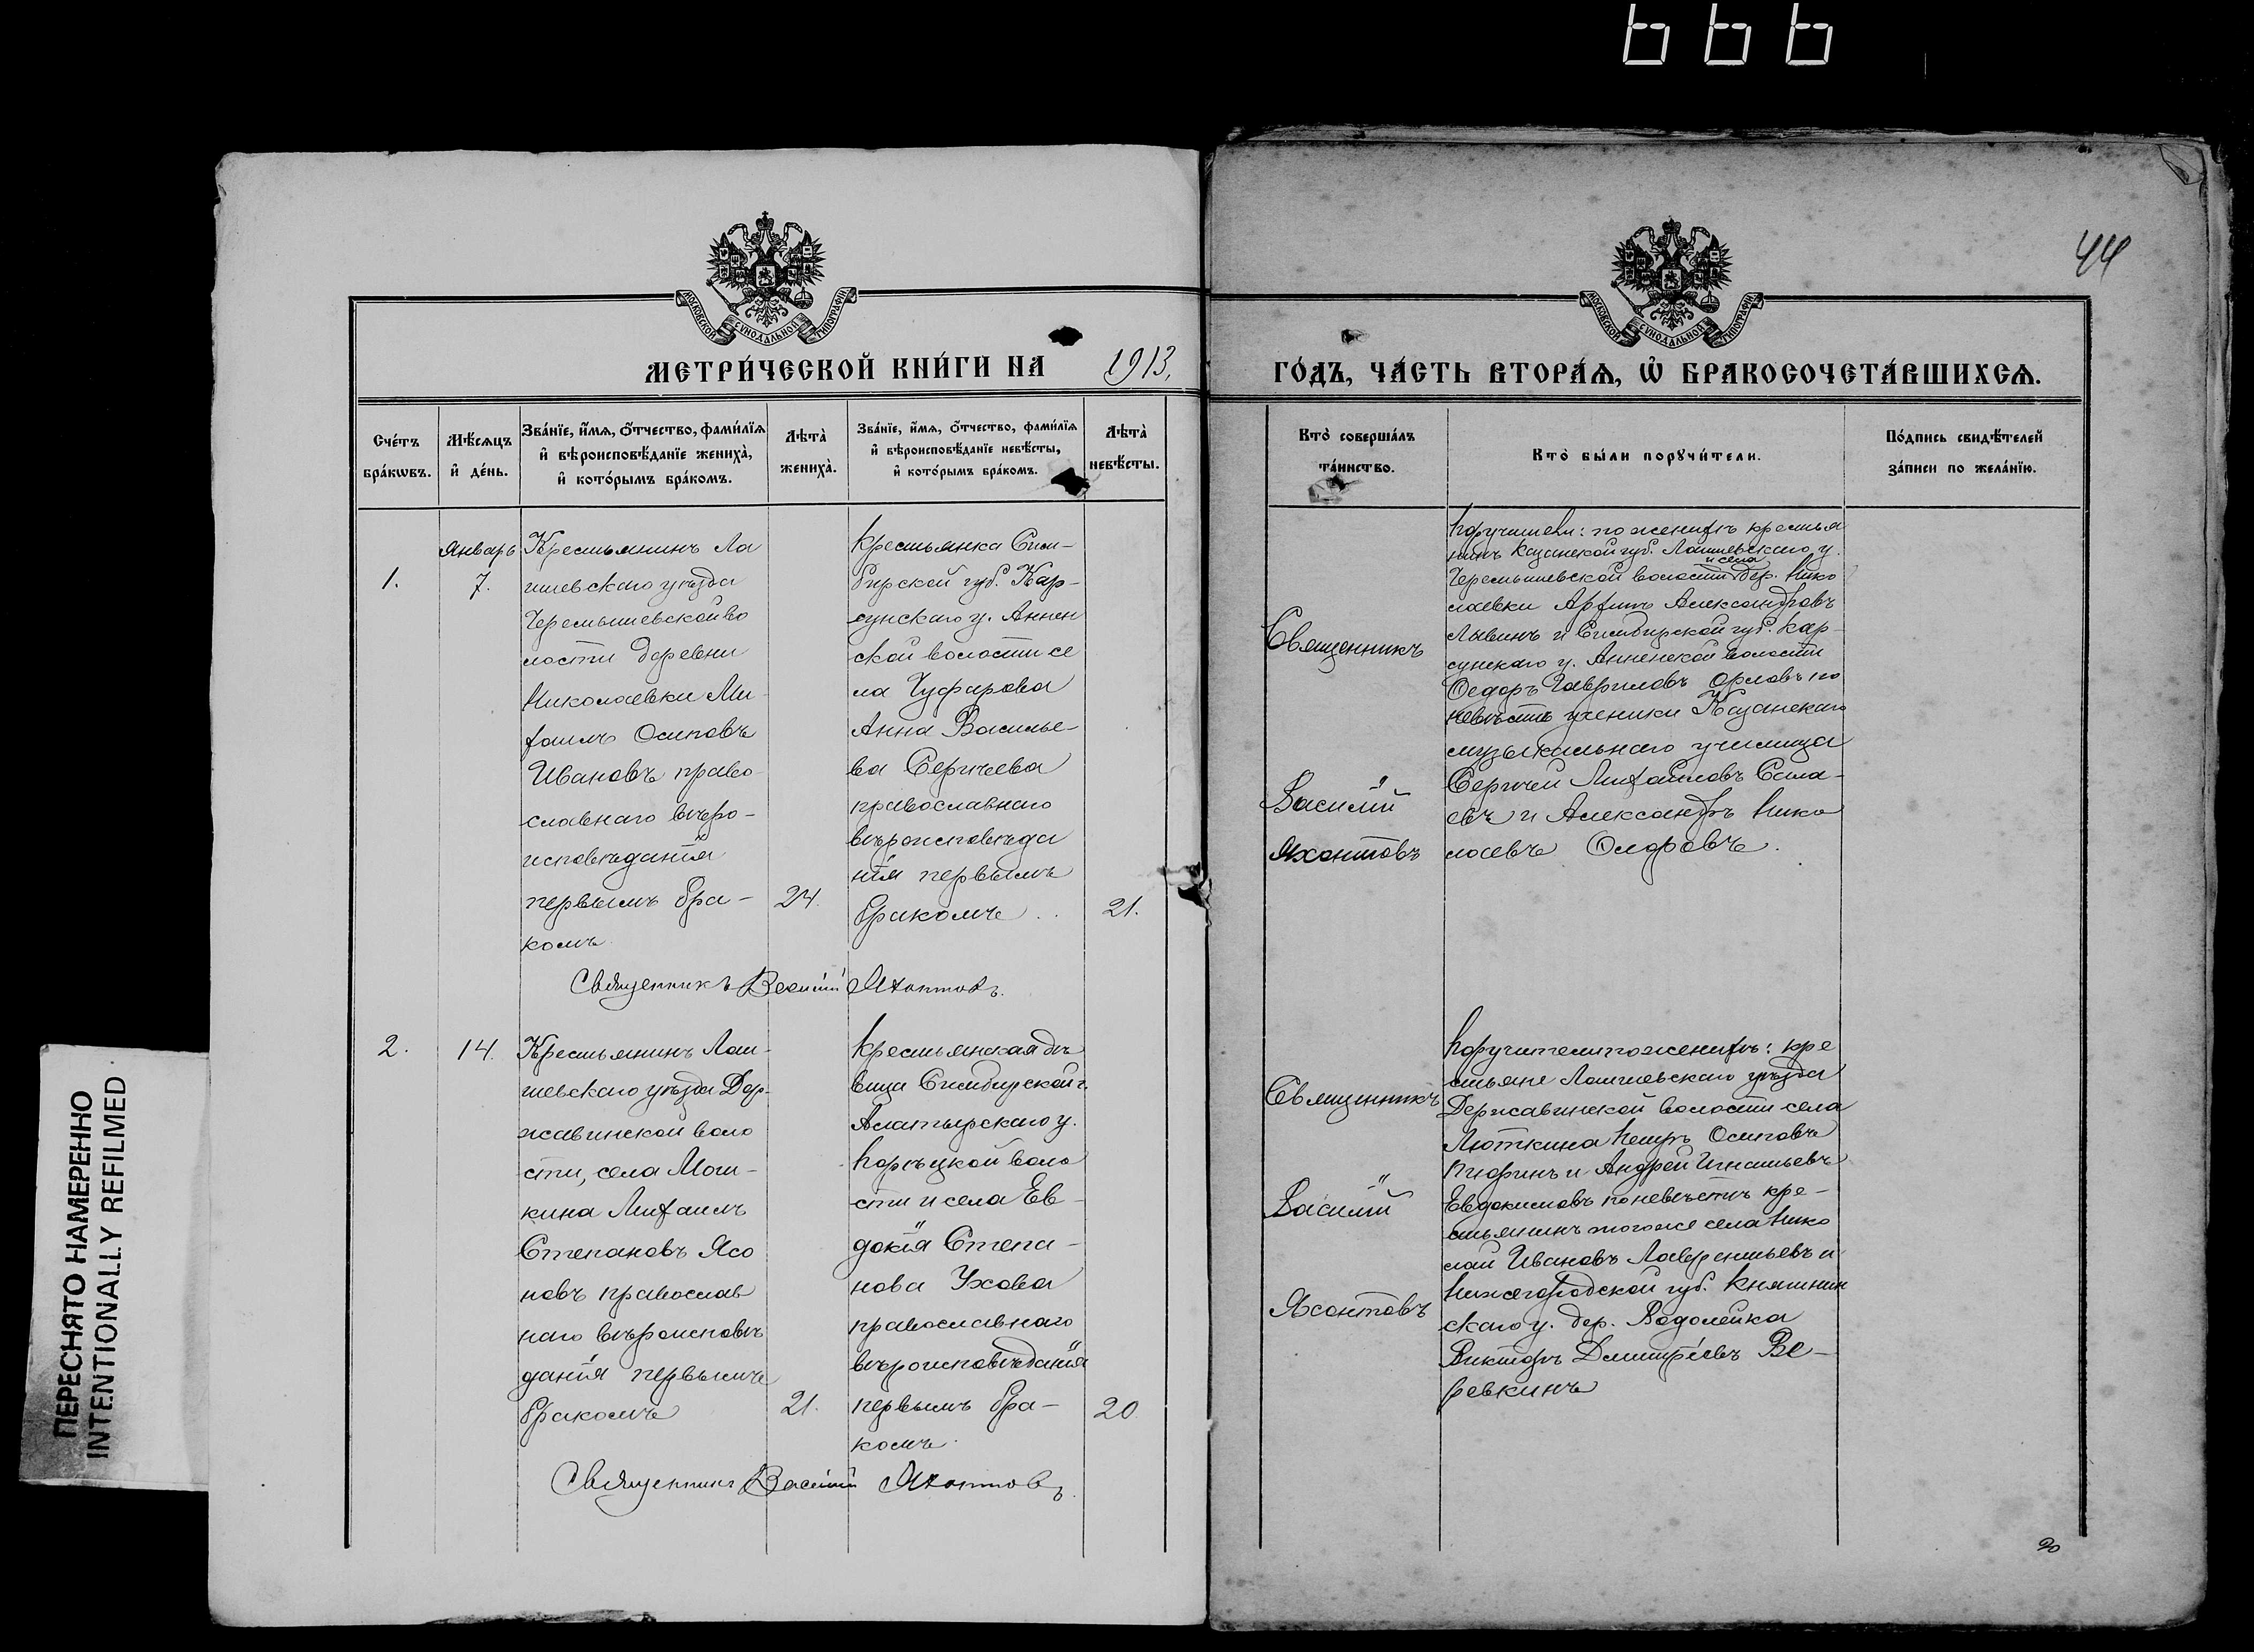 ььь
44
МОСКОВСКОЙ СѴНОДАЛЬНОЙ ТИПОГРАФІИ
МОСКОВСКОЙ СѴНОДАЛЬНОЙ ТИПОГРАФІИ
МЕТРИ́ЧЕСКОЙ КНИ́ГИ НА 1913,
ГО́ДЪ, ЧА́СТЬ ВТОРА́Ѧ, Ѡ҆ БРАКОСОЧЕТА́ВШИХСѦ.
Сче́тъ
бра́кѡвъ.
Мѣ́сѧцъ
и҆ де́нь.
Зва́нїе, и҆́мѧ, ѻ҆́тчество, фами́лїѧ
и҆ вѣроисповѣ́данїе жениха̀,
и҆ кото́рымъ бра́комъ.
Лѣта̀
жениха̀.
Зва́нїе, и҆́мѧ, ѻ҆́тчество, фами́лїѧ
и҆ вѣроисповѣ́данїе невѣ́сты,
и҆ кото́рымъ бра́комъ.
Лѣта̀
невѣ́сты.
Кто̀ соверша́лъ
та́инство.
Кто̀ бы́ли порꙋчи́тели.
По́дпись свидѣ́телей
за́писи по жела́нїю.
1.
Январь
7.
Крестьянинъ Ла
ишевскаго уѣзда
Черемышевской во
лости деревни
Николаевки Ми-
хаилъ Осиповъ
Ивановъ право-
славнаго вѣро-
исповѣданія
первымъ бра-
комъ
24.
Крестьянка Сим-
бирской губ. Кар-
сунскаго у. Аннен
ской волости се
ла Чуфарова
Анна Василье-
ва Сергѣева
православнаго
вѣроисповѣда
нія первымъ
бракомъ
21.
Священникъ Василій Яхонтовъ.
Священникъ
Василій
Яхонтовъ
Поручители: по женихѣ крестья
нинъ Казанской губ. Лаишевскаго у.
и села
Черемышевской волости дер. Нико
лаевки Александровъ
и Симбирской губ. Кар-
сунскаго у. Анненской волости
Ѳедоръ Гавриловъ Орловъ по
невѣстѣ ученики Казанскаго
музыкальнаго училища
Сергѣй Михайловъ Сила-
евъ и Александръ Нико
лаевъ
2.
14.
Крестьянинъ Лаи-
шевскаго уѣзда Дер-
жавинской воло
сти, села Мош-
кина Михаилъ
Степановъ Ясо
новъ православ
наго вѣроисповѣ
данія первымъ
бракомъ
21.
Крестьянская дѣ
вица Симбирской г.
Алатырскаго у.
Порѣцкой воло
сти и села Ев-
докія Степа-
нова Ухова
православнаго
вѣроисповѣданія
первымъ бра-
комъ
20
Священникъ Василій Яхонтовъ
Священникъ
Василій
Яхонтовъ
Поручители по женихѣ: кре
стьяне Лаишевскаго уѣзда
Державинской волости села
Петръ Осиповъ
и Андрей Игнатьевъ
Евдокимовъ по невѣстѣ кре-
стьянинъ того же села Нико
лай Ивановъ Лаврентьевъ и
Нижегородской губ. Княгинин
скаго у. дер. Водолейка
Викторъ Димитріевъ Ве-
ревкинъ
20
ПЕРЕСНЯТО НАМЕРЕННО
INTENTIONALLY REFILMED